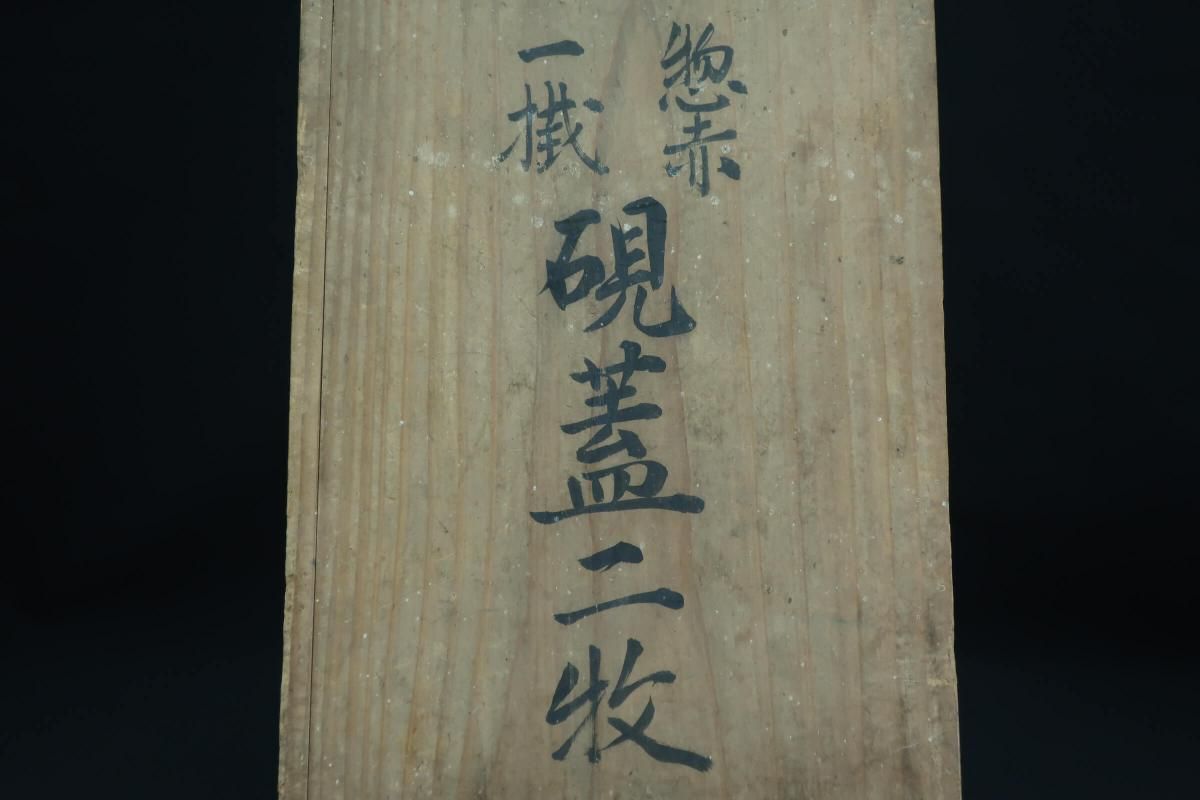 惣赤
一
硯蓋二牧